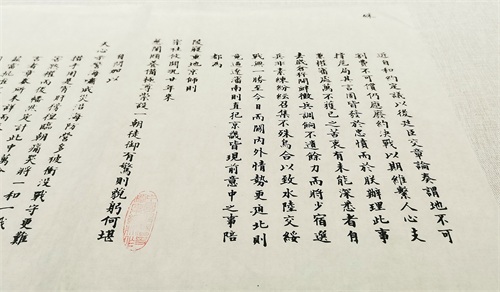 近自和約定議以後廷臣交章論奏謂地不可
棄費不可償仍應廢約決戰以期維繫人心支
撐危局其言固皆發於忠憤而於朕辦理此事
兼權審處萬不獲已之苦衷有未能深悉者自
去歲倉猝開釁徵兵調餉不遺餘力而將少宿選
兵非素練紛紜召集不殊烏合以致水陸交綏
戰無一勝至今日而關內外情勢更迫北則
竟逼遼瀋南則直犯京畿皆現前意中之事陪
都為
陵寢重地京師則
宗社攸關況廿年來
慈闈頤養備極尊崇設一朝徒御有驚則藐躬何堪
自問加以
天心示警海嘯成災沿海防營多被衝沒戰守更難
措手用是宵旰徬徨臨朝痛哭將一和一戰
權而後幡然定計此中萬
言者章奏所未詳而